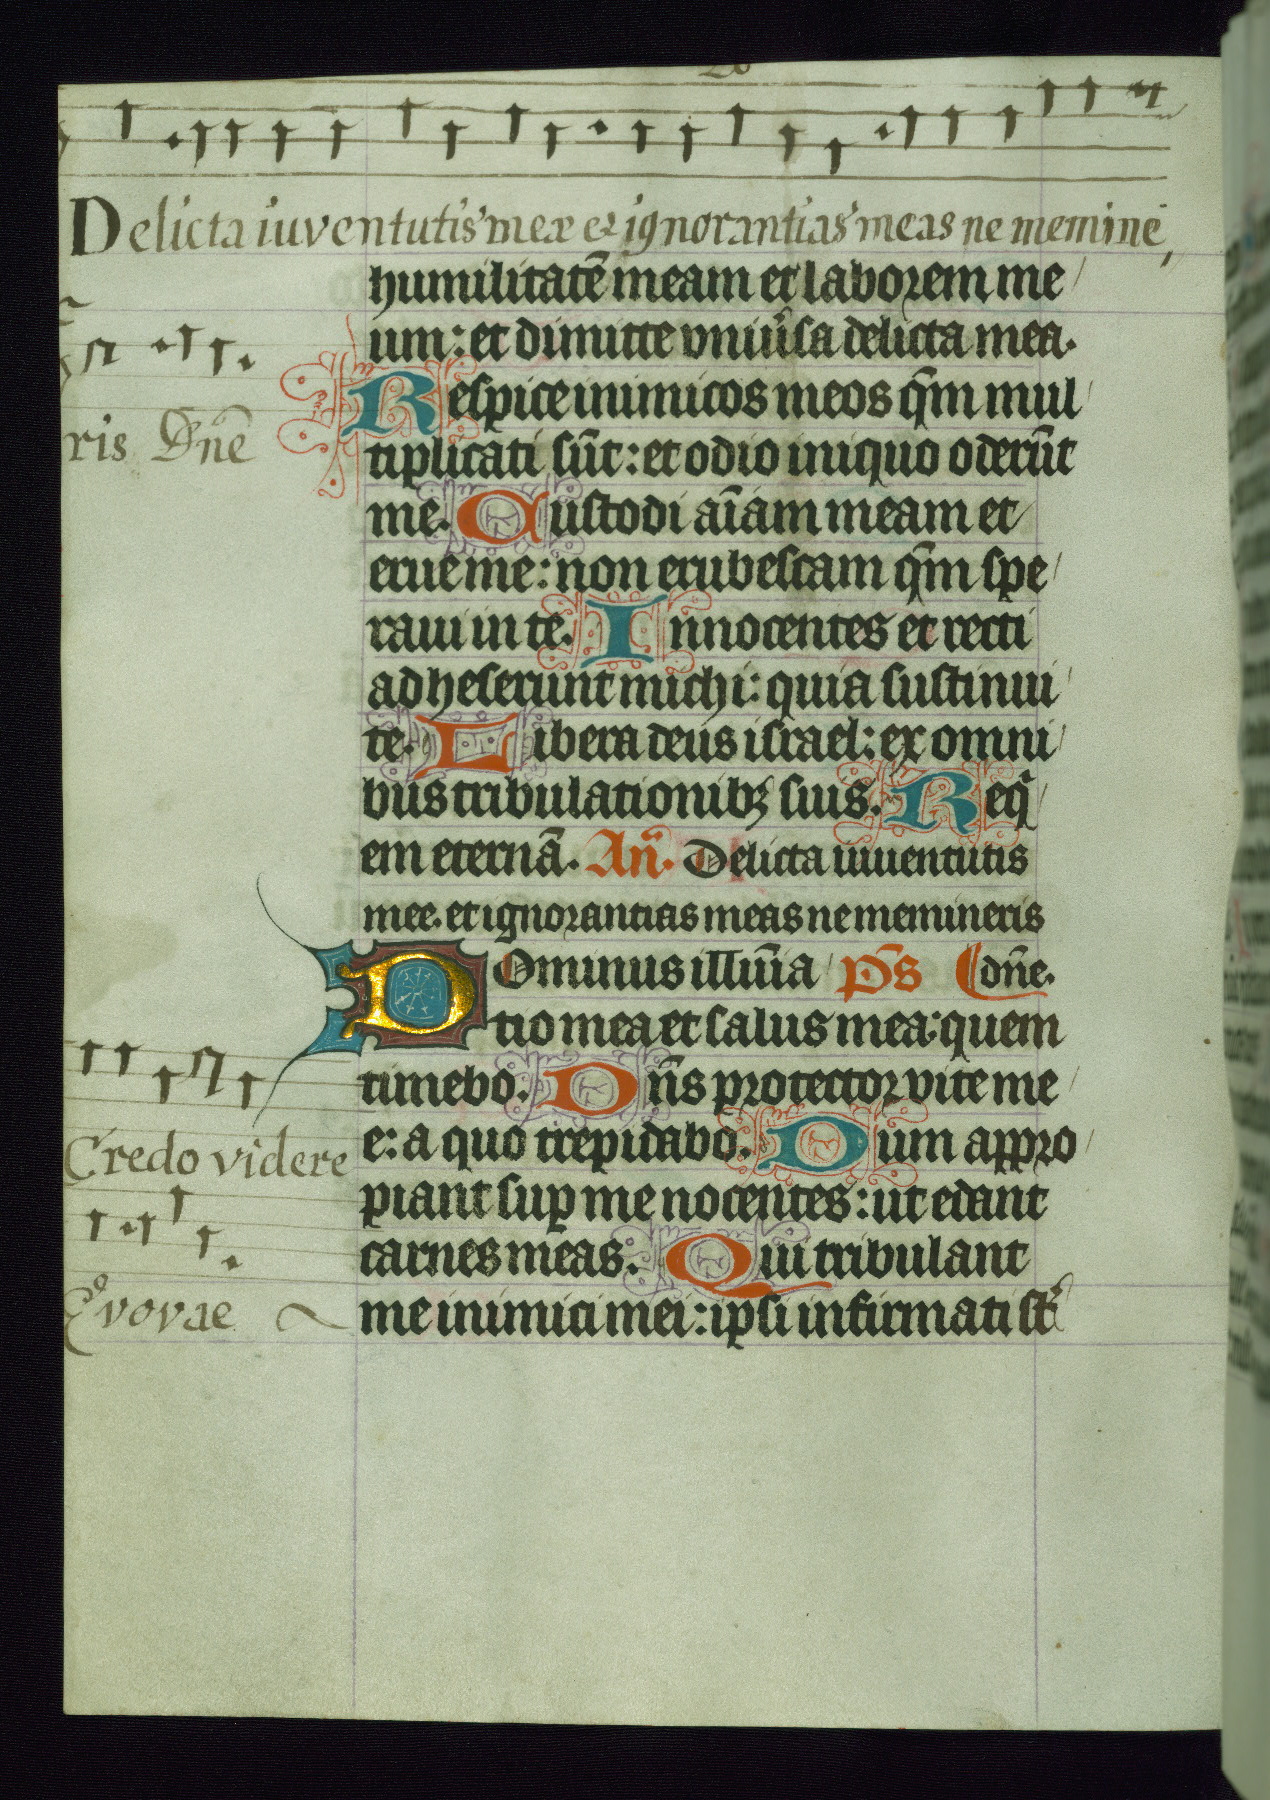 Delicta iuventutis meæ & ignorantias meas ne meminé,
humilitatē meam et laborem me
um: et dimitte vniūsa delicta mea.
ris Dn̄e
Respice inimicos meos qm̄ mul
tiplicati sūt: et odio iniquo oderūt
me. Custodi aīam meam et
erue me: non erubescam qm̄ spe
raui in te. Innocentes et recti
adheserunt michi: quia sustinui
te. Libera deus israel: ex omni
bus tribulationibꝫ suis. Requi
em eternā. An̄. Delicta iuuentutis
mee. et ignorantias meas ne memineris
Dominus illūia ps̄ dn̄e.
tio mea et salus mea: quem
timebo. Dn̄s protector vite me
e: a quo trepidabo. Dum appro
Credo videre
piant suꝑ me nocentes: ut edant
carnes meas. Qui tribulant
Evovae
me inimici mei: ipsi infirmati st̄